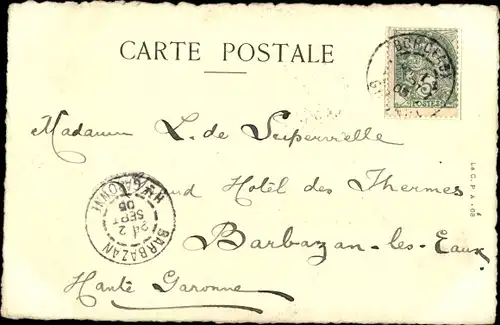 CARTE POSTALE
5
POSTES
Madame L. de Supervielle
Grand Hotel des Thermes
Barbazan-les-Eaux.
Haute Garonne
BARBAZAN
24 2
SEPT
05
Hte GARONNE
La C. P. A.